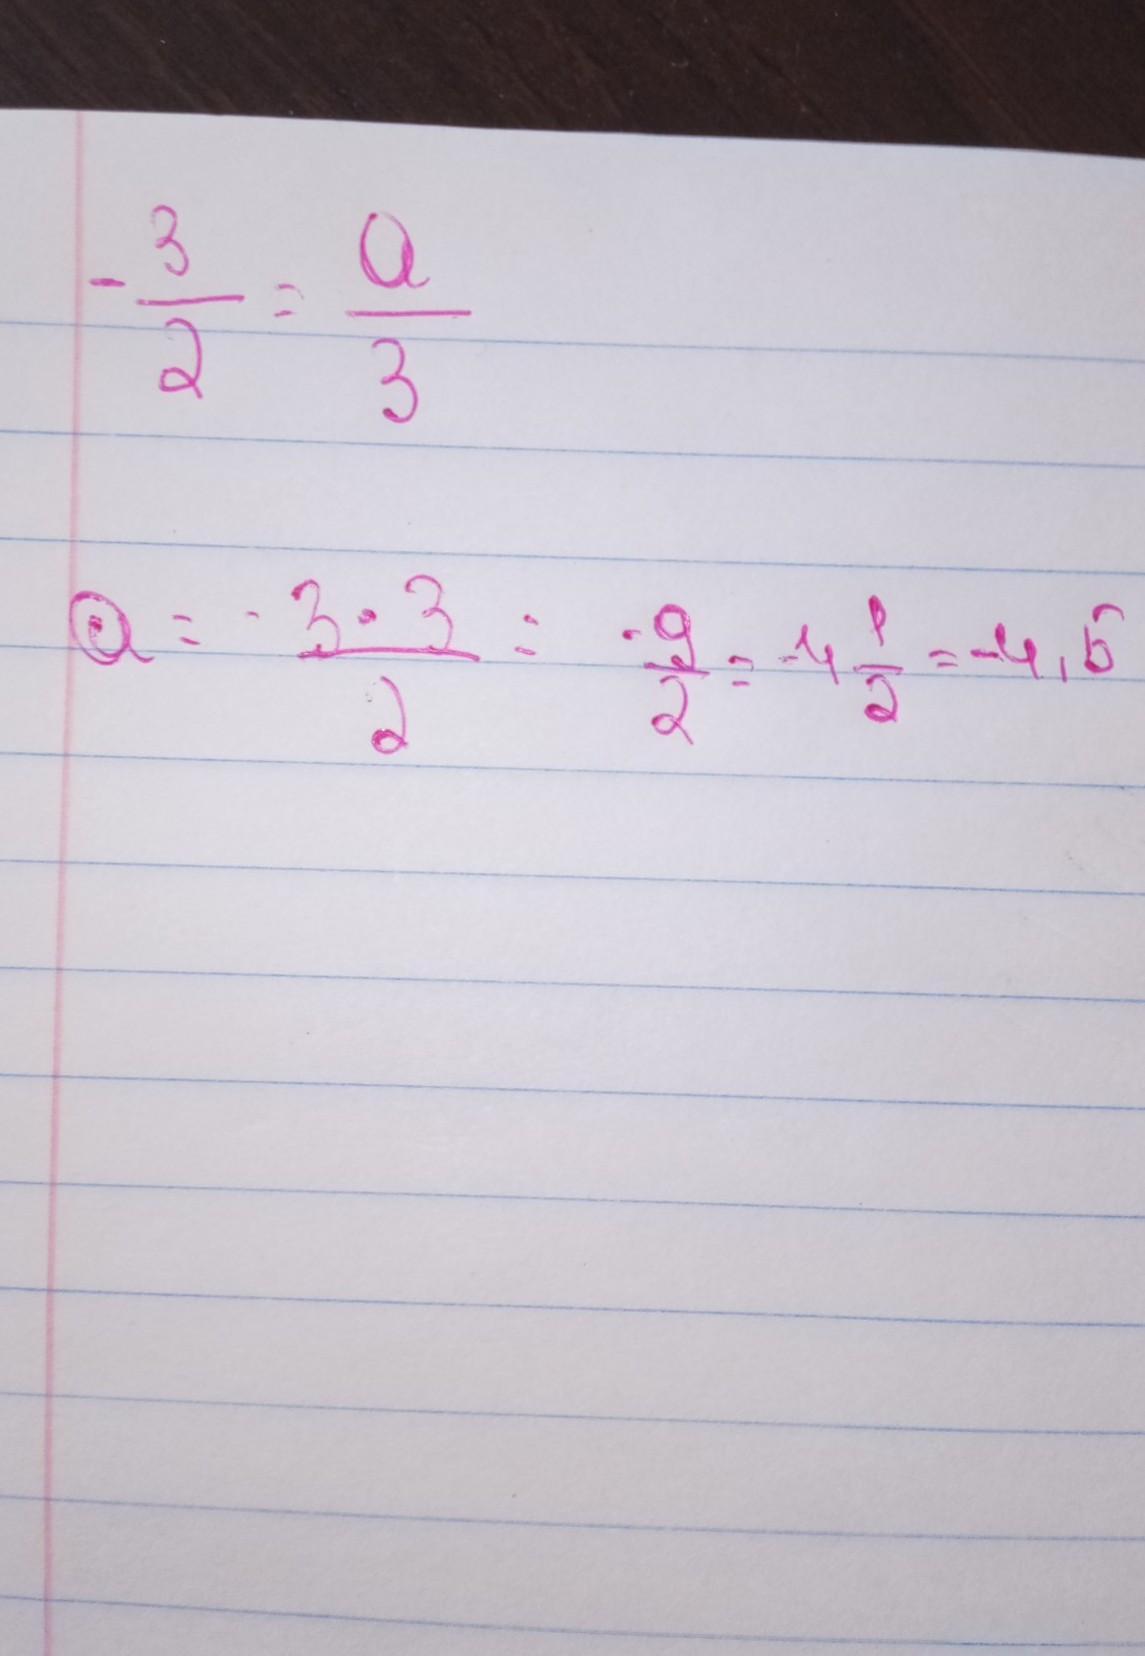 -3/2 = a/3
a = -3·3/2 = -9/2 = -4 1/2 = -4,5